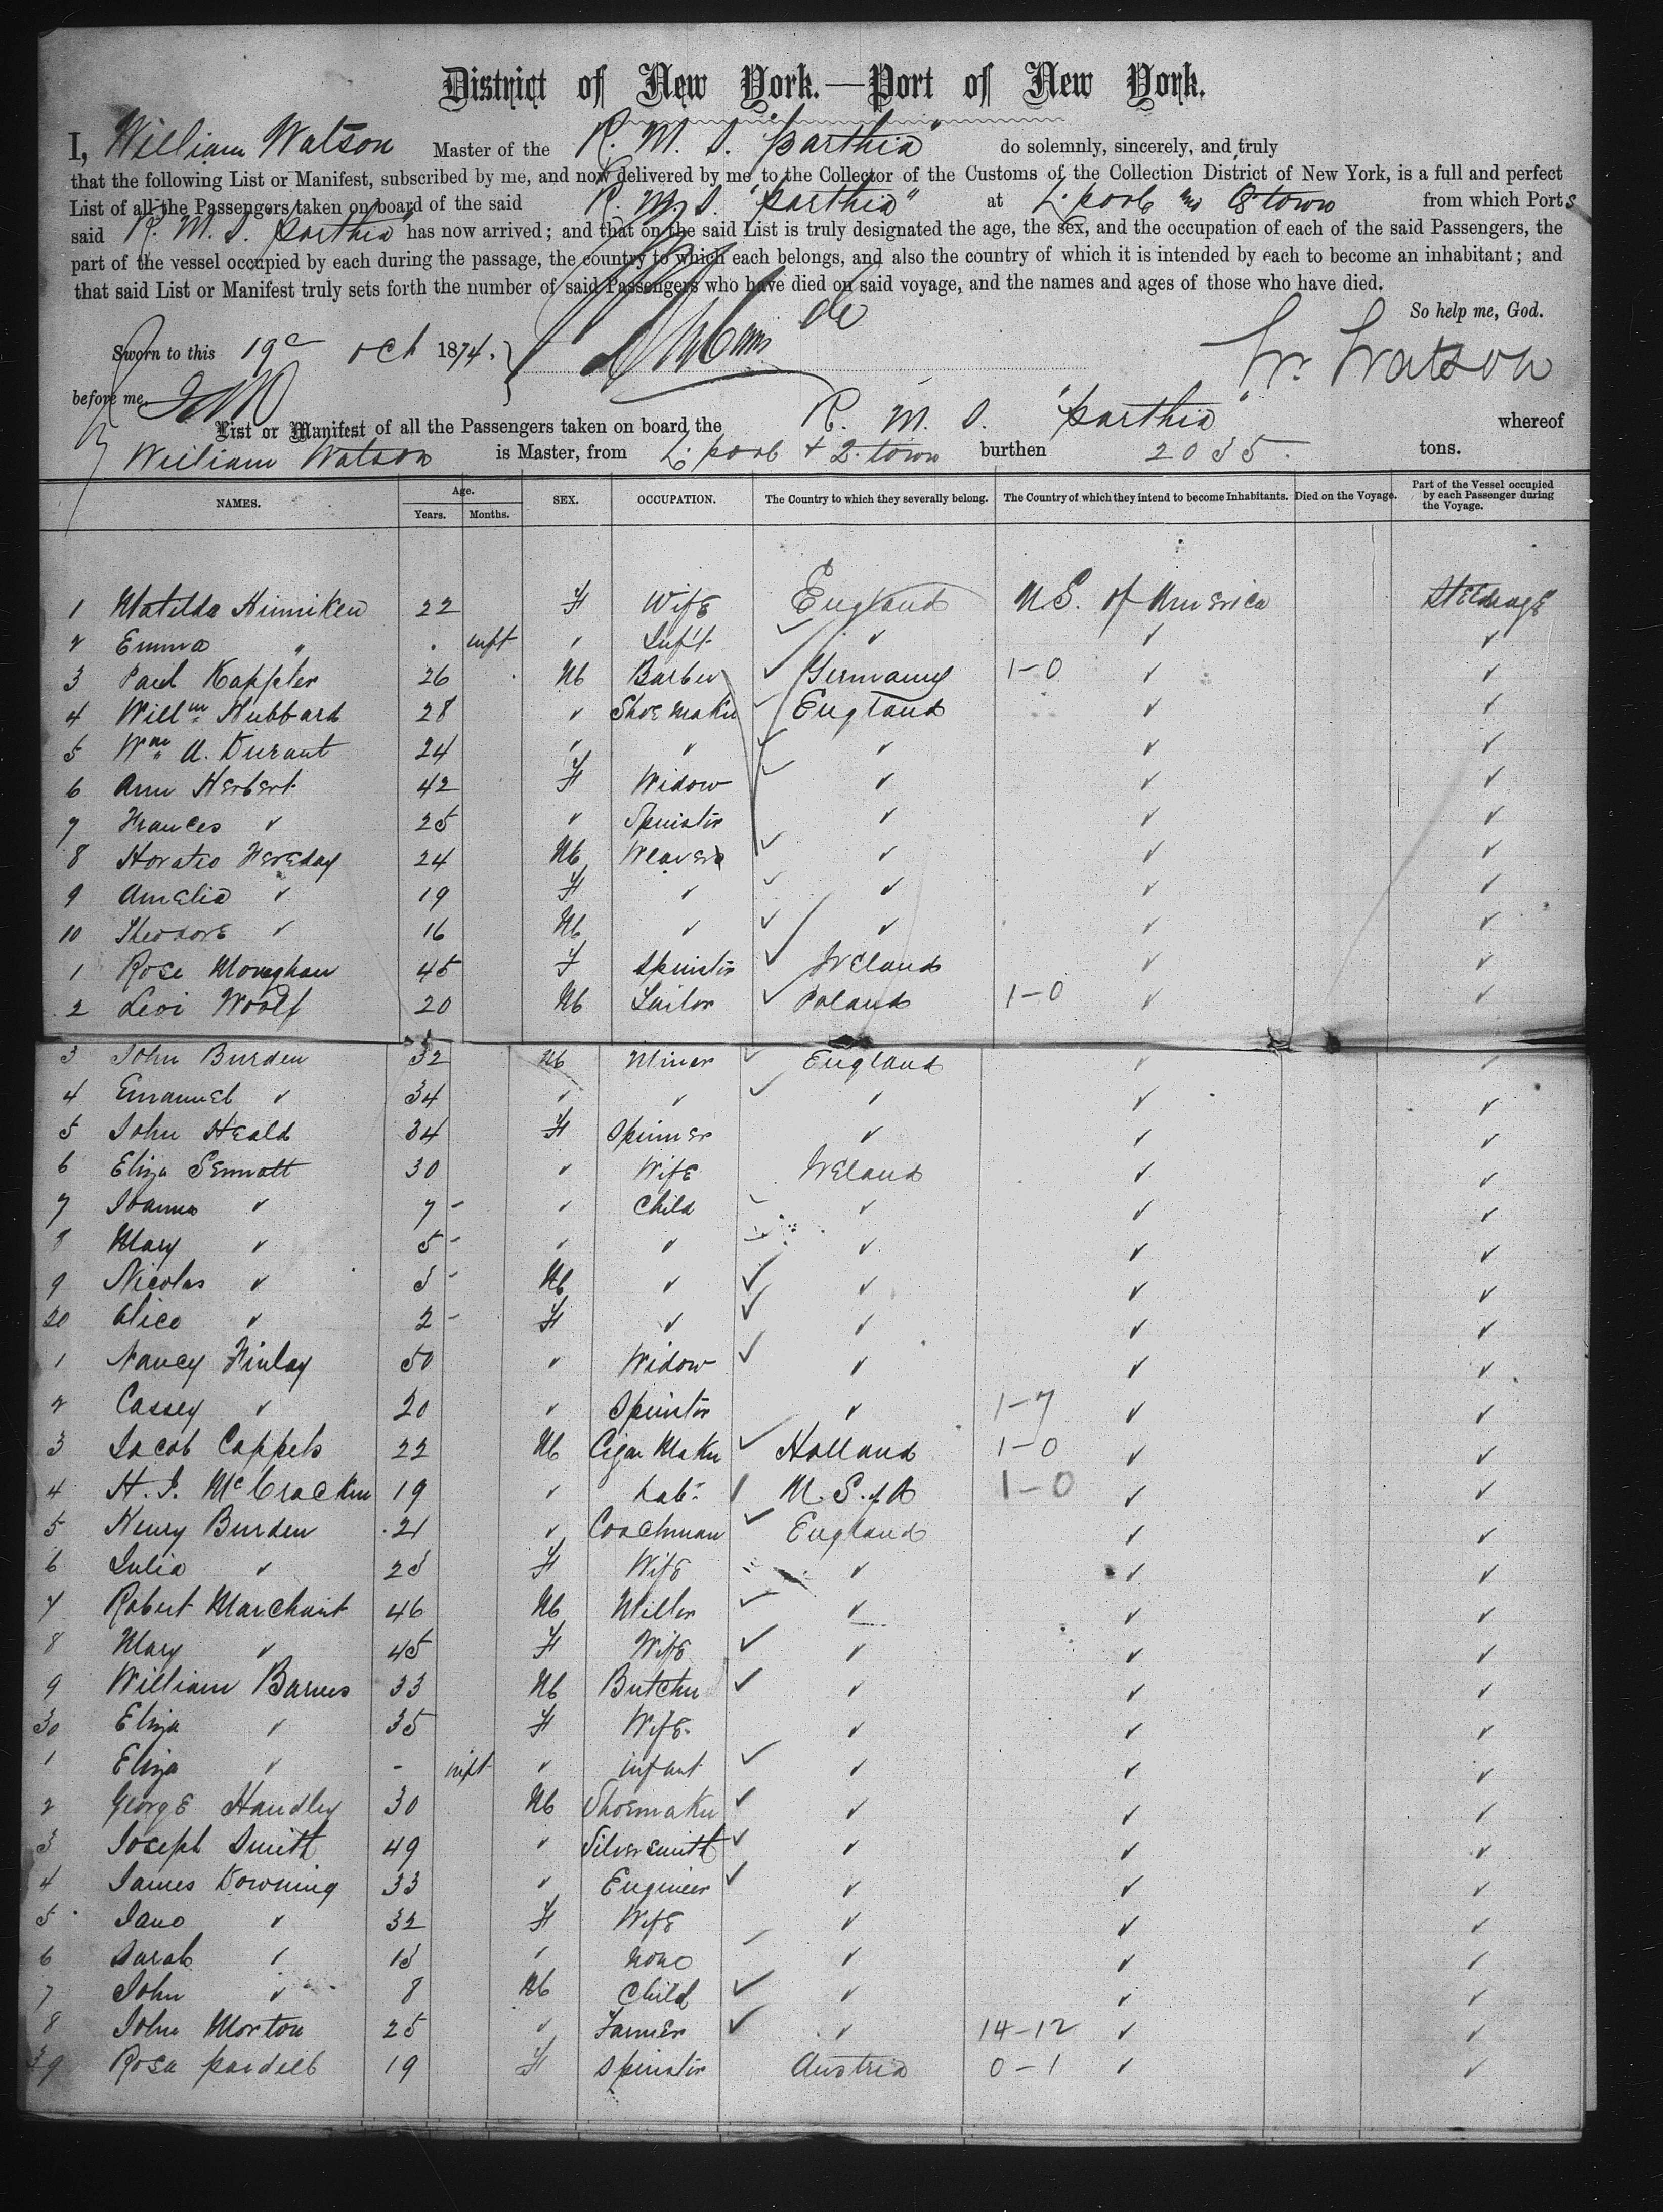 District of New York.—Port of New York.
I, William Watson Master of the R. M. S. "Parthia" do solemnly, sincerely, and truly
that the following List or Manifest, subscribed by me, and now delivered by me to the Collector of the Customs of the Collection District of New York, is a full and perfect
List of all the Passengers taken on board of the said R. M. S. "Parthia" at L'pool and Q'town from which Ports
said R. M. S. "Parthia" has now arrived; and that on the said List is truly designated the age, the sex, and the occupation of each of the said Passengers, the
part of the vessel occupied by each during the passage, the country to which each belongs, and also the country of which it is intended by each to become an inhabitant; and
that said List or Manifest truly sets forth the number of said Passengers who have died on said voyage, and the names and ages of those who have died.
So help me, God.
Sworn to this 19 Oct 1874. W. Watson
before me,
List or Manifest of all the Passengers taken on board the R. M. S. "Parthia" whereof
William Watson is Master, from L'pool + Q. town burthen 2035 tons.
NAMES. Age. Years. Months. SEX. OCCUPATION. The Country to which they severally belong. The Country of which they intend to become Inhabitants. Died on the Voyage. Part of the Vessel occupied by each Passenger during the Voyage.
1 Matilda Hinniken 22 F Wife England U.S. of America Steerage
2 Emma " inft ✓ Inft ✓ ✓ ✓ ✓
3 Paul Kappler 26 M Barber ✓ Germany 1-0 ✓ ✓
4 Willm Hubbard 28 ✓ Shoemaker ✓ England ✓ ✓
5 Wm A. Durant 24 ✓ ✓ ✓ ✓ ✓ ✓
6 Ann Herbert 42 F Widow ✓ ✓ ✓ ✓
7 Frances ✓ 25 ✓ Spinster ✓ ✓ ✓
8 Horatio Hereday 24 M Weaver ✓ ✓ ✓ ✓
9 Amelia ✓ 19 F ✓ ✓ ✓ ✓ ✓
10 Theodore ✓ 16 M ✓ ✓ ✓ ✓ ✓
1 Rose Monaghan 45 F Spinster ✓ Ireland ✓ ✓
2 Levi Woolf 20 M Tailor ✓ Poland 1-0 ✓ ✓
3 John Burden 32 M Miner ✓ England ✓ ✓
4 Emanuel ✓ 34 ✓ ✓ ✓ ✓ ✓ ✓
5 John Heald 34 F Spinner ✓ ✓ ✓
6 Eliza Sennott 30 ✓ Wife Ireland ✓ ✓
7 Joanna ✓ 7 - ✓ Child ✓ ✓ ✓ ✓
8 Mary ✓ 5 - ✓ ✓ ✓ ✓ ✓ ✓
9 Nicolas ✓ 3 - M ✓ ✓ ✓ ✓ ✓
20 Alice ✓ 2 - F ✓ ✓ ✓ ✓ ✓
1 Nancy Finlay 50 ✓ Widow ✓ ✓ ✓ ✓
2 Cassey ✓ 20 ✓ Spinster ✓ 1-7 ✓ ✓
3 Jacob Cappels 22 M Cigar Maker ✓ Holland 1-0 ✓ ✓
4 H. J. McCracken 19 ✓ Labr U. S. of A 1-0 ✓ ✓
5 Henry Burden 21 ✓ Coachman ✓ England ✓ ✓
6 Julia ✓ 23 F Wife ✓ ✓ ✓
7 Robert Marchant 46 M Miller ✓ ✓ ✓ ✓
8 Mary ✓ 45 F Wife ✓ ✓ ✓ ✓
9 William Barnes 33 M Butcher ✓ ✓ ✓ ✓
30 Eliza ✓ 35 F Wife ✓ ✓ ✓
1 Eliza ✓ - inft ✓ infant ✓ ✓ ✓ ✓
2 George Handley 30 M Shoemaker ✓ ✓ ✓ ✓
3 Joseph Smith 49 ✓ Silversmith ✓ ✓ ✓ ✓
4 James Downing 33 ✓ Engineer ✓ ✓ ✓ ✓
5 Jane ✓ 32 F Wife ✓ ✓ ✓
6 Sarah ✓ 13 ✓ None ✓ ✓ ✓
7 John ✓ 8 M Child ✓ ✓ ✓ ✓
8 John Morton 25 ✓ Farmer ✓ ✓ 14-12 ✓ ✓
39 Rosa Pardell 19 F Spinster Austria 0-1 ✓ ✓